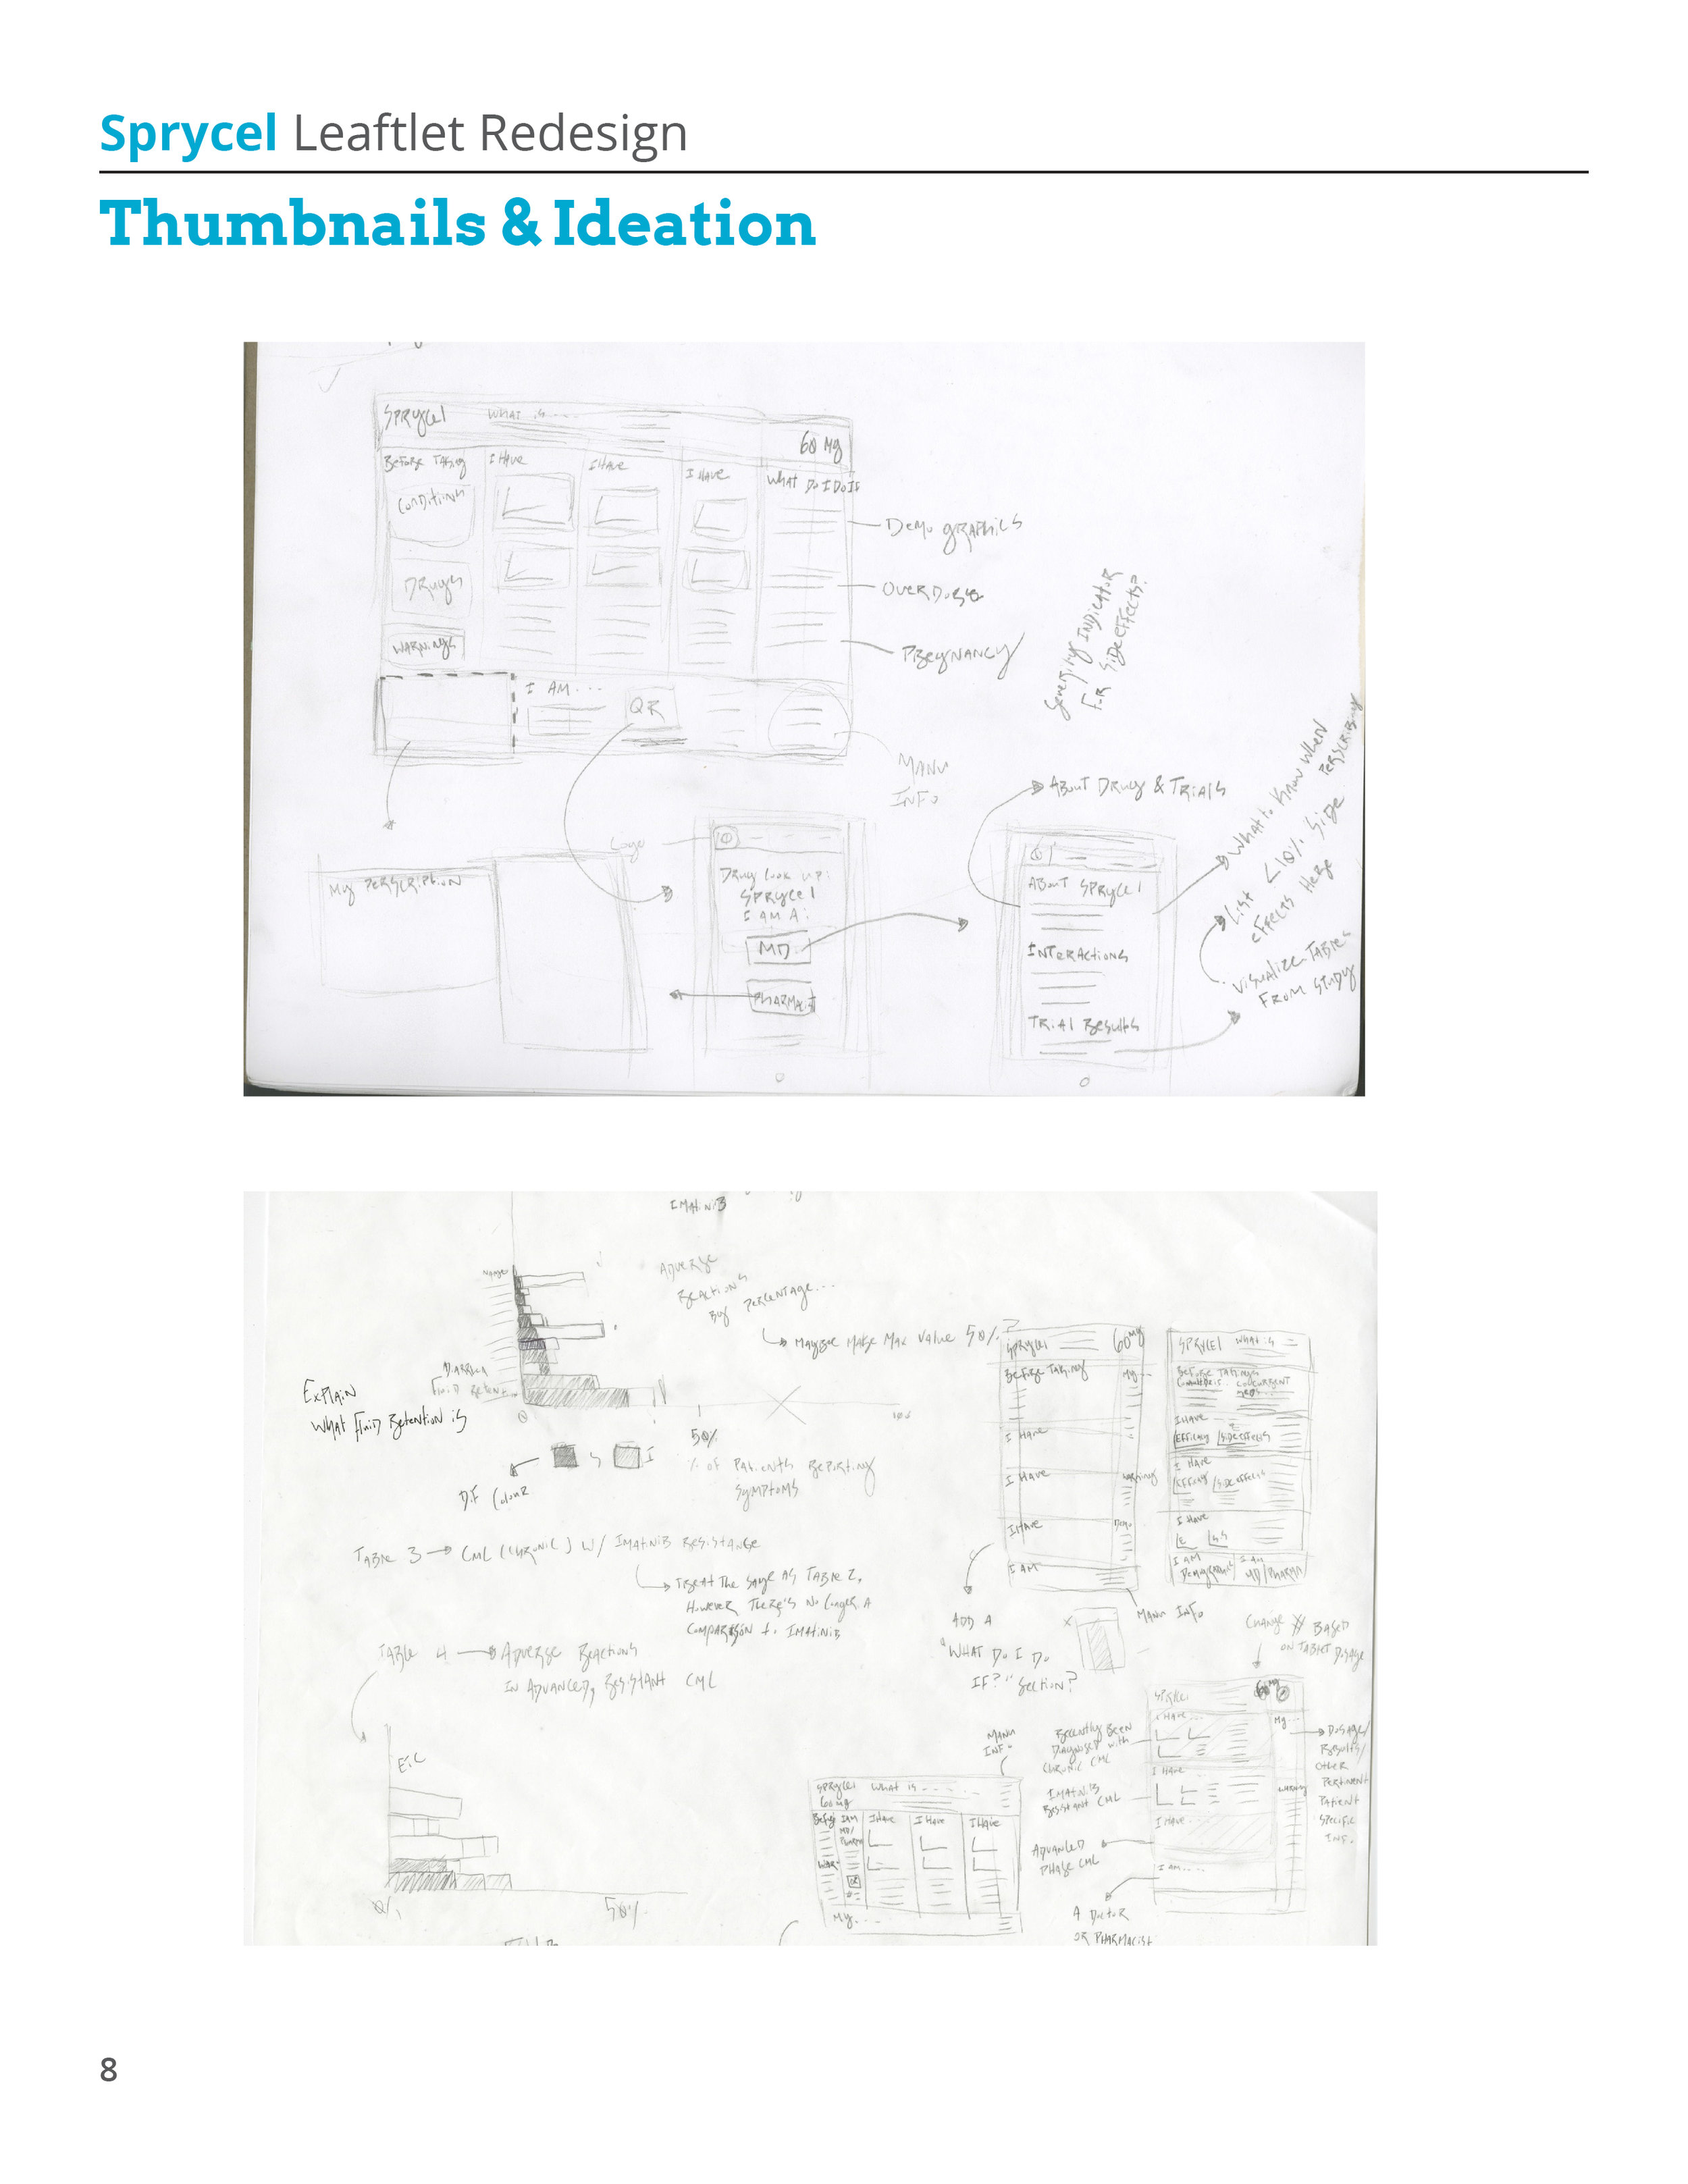 Sprycel Leaftlet Redesign
Thumbnails & Ideation
SPRYCEl
WHAT is ...
60 Mg
Before Taking
I Have
I Have
I Have
What Do I Do If
Conditions
Drugs
Warnings
Demographics
Overdose
Pregnancy
Severity Indicator
For Side Effects?
I AM ...
QR
Manu
Info
My Perscription
Logo
Drug look up:
Sprycel
I am A:
MD
Pharmacist
About Drug & Trials
About Sprycel
Interactions
Trial Results
What to Know When
Perscribing
List <10% Side
Effects Here
Visualize Tables
From Study
Imatinib
Adverse
Reactions
By Percentage...
Maybe Make Max Value 50%?
Diarrhea
Fluid Retention
Explain
What Fluid Retention is
0
50%
100
% of Patients Reporting
Symptoms
S
I
Dif Colour
Table 3 → CML (Chronic) w/ Imatinib Resistance
Treat the same as Table 2,
However There's No Longer A
Comparison to Imatinib
Table 4 → Adverse Reactions
in Advanced, Resistant CML
Etc
0%
50%
Sprycel
60 mg
Before Taking
My...
I Have
I Have
Warnings
I Have
Demo
I AM
Manu Info
Add A
"What Do I Do
If?" Section?
Sprycel What is
Before Taking
I Have
Efficacy
Side Effects
I Have
Efficacy
Side Effects
I Have
E
S.S
I AM
Demographic
I AM
MD/Pharma
Change # Based
on Tablet Dosage
Sprycel
60 mg
I Have...
My...
I Have
Warning
I Have
I am....
Recently Been
Diagnosed with
Chronic CML
Imatinib
Resistant CML
Advanced
Phase CML
A Doctor
or Pharmacist
Dosage/
Results/
Other
Pertinent
Patient
Specific
Inf.
Manu
Info
Sprycel
60 mg
What is ....
Before
I AM
MD/
Pharma
I Have
I Have
I Have
War
QR
My...
8